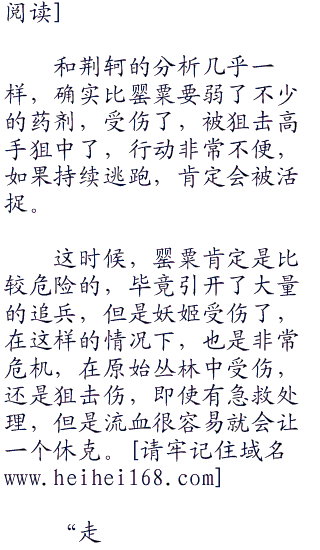 阅读]
和荆轲的分析几乎一
样，确实比罂粟要弱了不少
的药剂，受伤了，被狙击高
手狙中了，行动非常不便，
如果持续逃跑，肯定会被活
捉。
这时候，罂粟肯定是比
较危险的，毕竟引开了大量
的追兵，但是妖姬受伤了，
在这样的情况下，也是非常
危机，在原始丛林中受伤，
还是狙击伤，即使有急救处
理，但是流血很容易就会让
一个休克。[请牢记住域名
www.heihei168.com]
“走